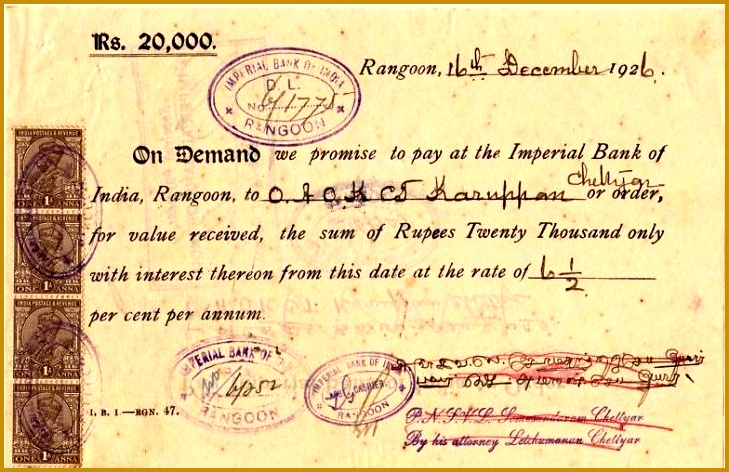 Rs. 20,000.
IMPERIAL BANK OF INDIA
D. L.
No.
RANGOON
Rangoon, 16th December 1926.
On Demand we promise to pay at the Imperial Bank of
India, Rangoon, to O A O K CT Karuppan Chettyar or order,
for value received, the sum of Rupees Twenty Thousand only
with interest thereon from this date at the rate of 6 1/2
per cent per annum.
INDIA POSTAGE & REVENUE
ONE 1A ANNA
INDIA POSTAGE & REVENUE
ONE 1A ANNA
INDIA POSTAGE & REVENUE
ONE 1A ANNA
INDIA POSTAGE & REVENUE
ONE 1A ANNA
IMPERIAL BANK OF
RANGOON
IMPERIAL BANK OF INDIA
CASHIER.
RANGOON
I. B. I—RGN. 47.
Somasundaram Chettyar
By his attorney Letchumanan Chettyar